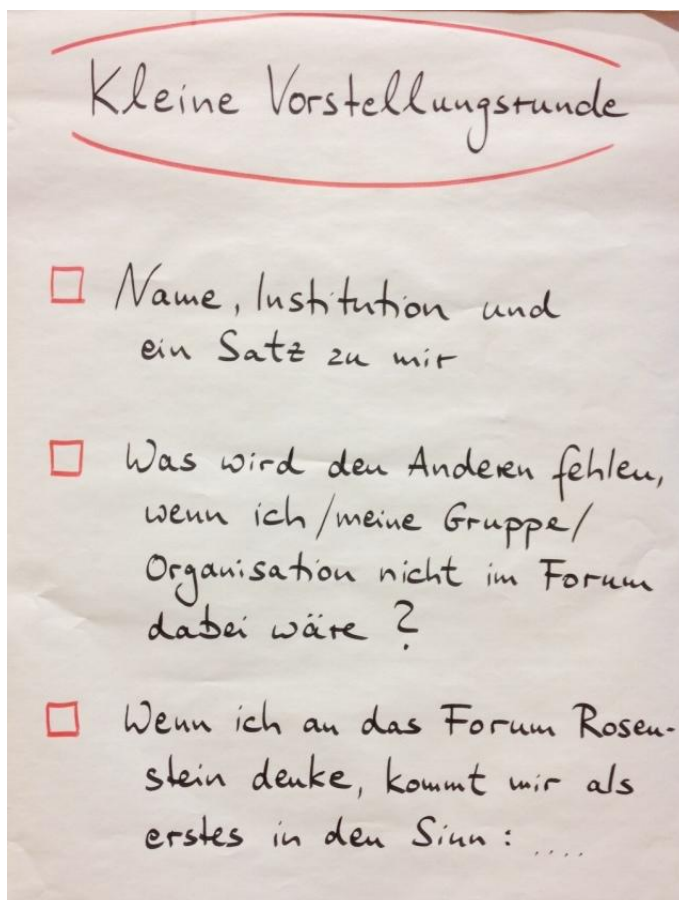 Kleine Vorstellungsrunde
Name, Institution und
ein Satz zu mir
Was wird den Anderen fehlen,
wenn ich/meine Gruppe/
Organisation nicht im Forum
dabei wäre?
Wenn ich an das Forum Rosen-
stein denke, kommt mir als
erstes in den Sinn: ....